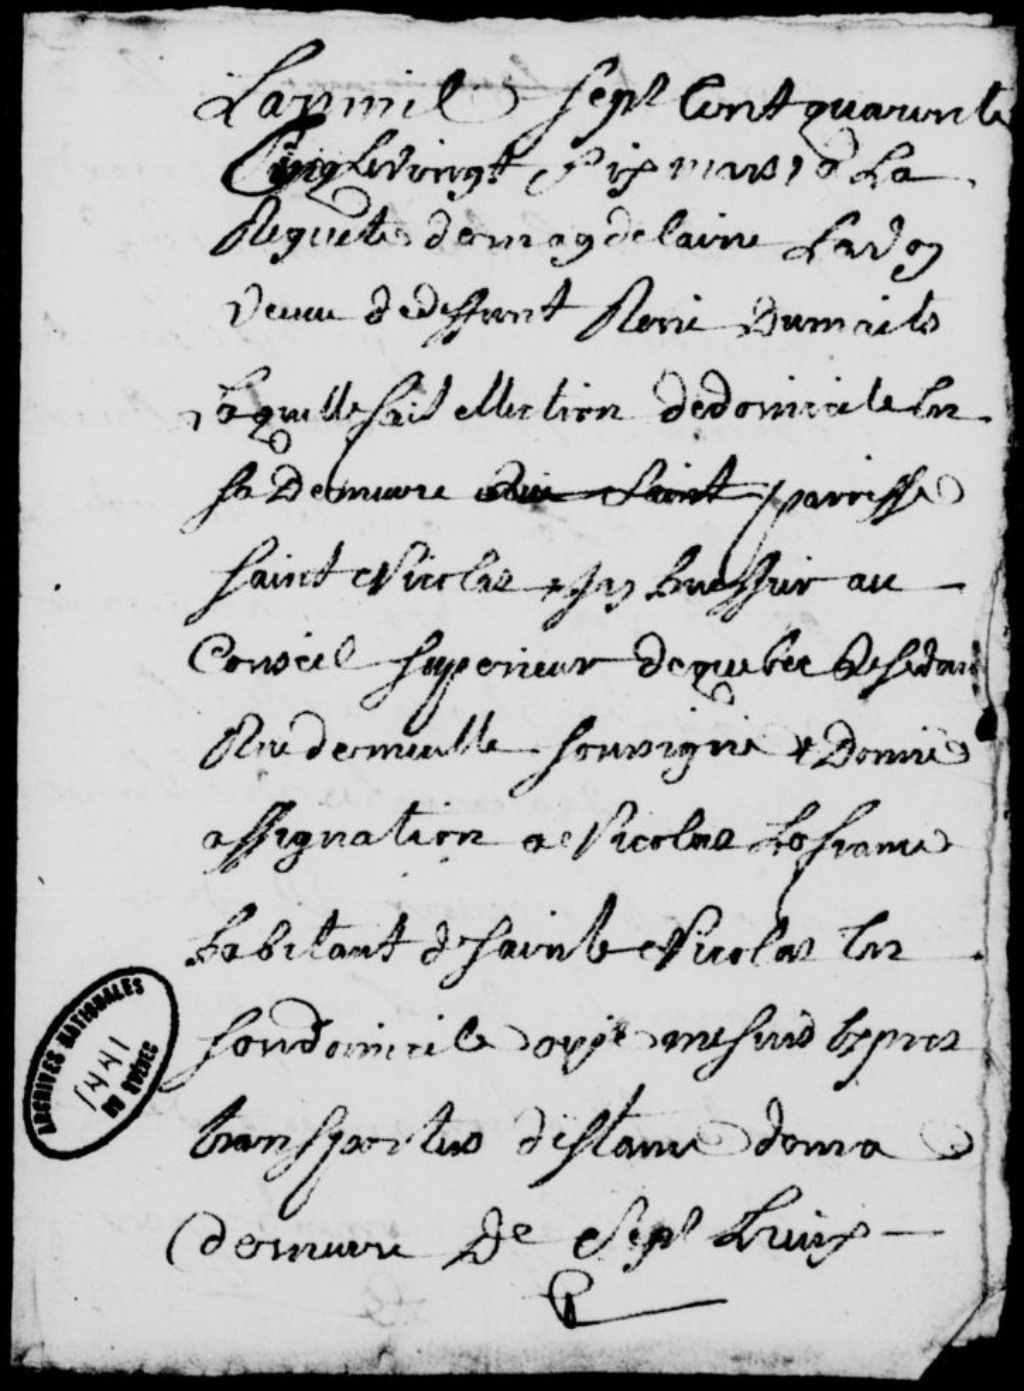 Lan mil Sept Cent quarente
Cinq le vingt Six mars, a La
Requeste de magdelaine
veuve de deffunt René Dumets
laquelle fait ellection de domicile En
sa Demeure Saint parroisse
saint Nicolas huissier au
Conseil superieur de quebec Residant
Rue de meulle soussigné & Donné
assignation a Nicolas Lafrance
habitant de sainte Nicolas En
son domicile ou je me suis Expres
transportée distance de ma
demeure De Sept Lieux
ARCHIVES NATIONALES
DU QUÉBEC